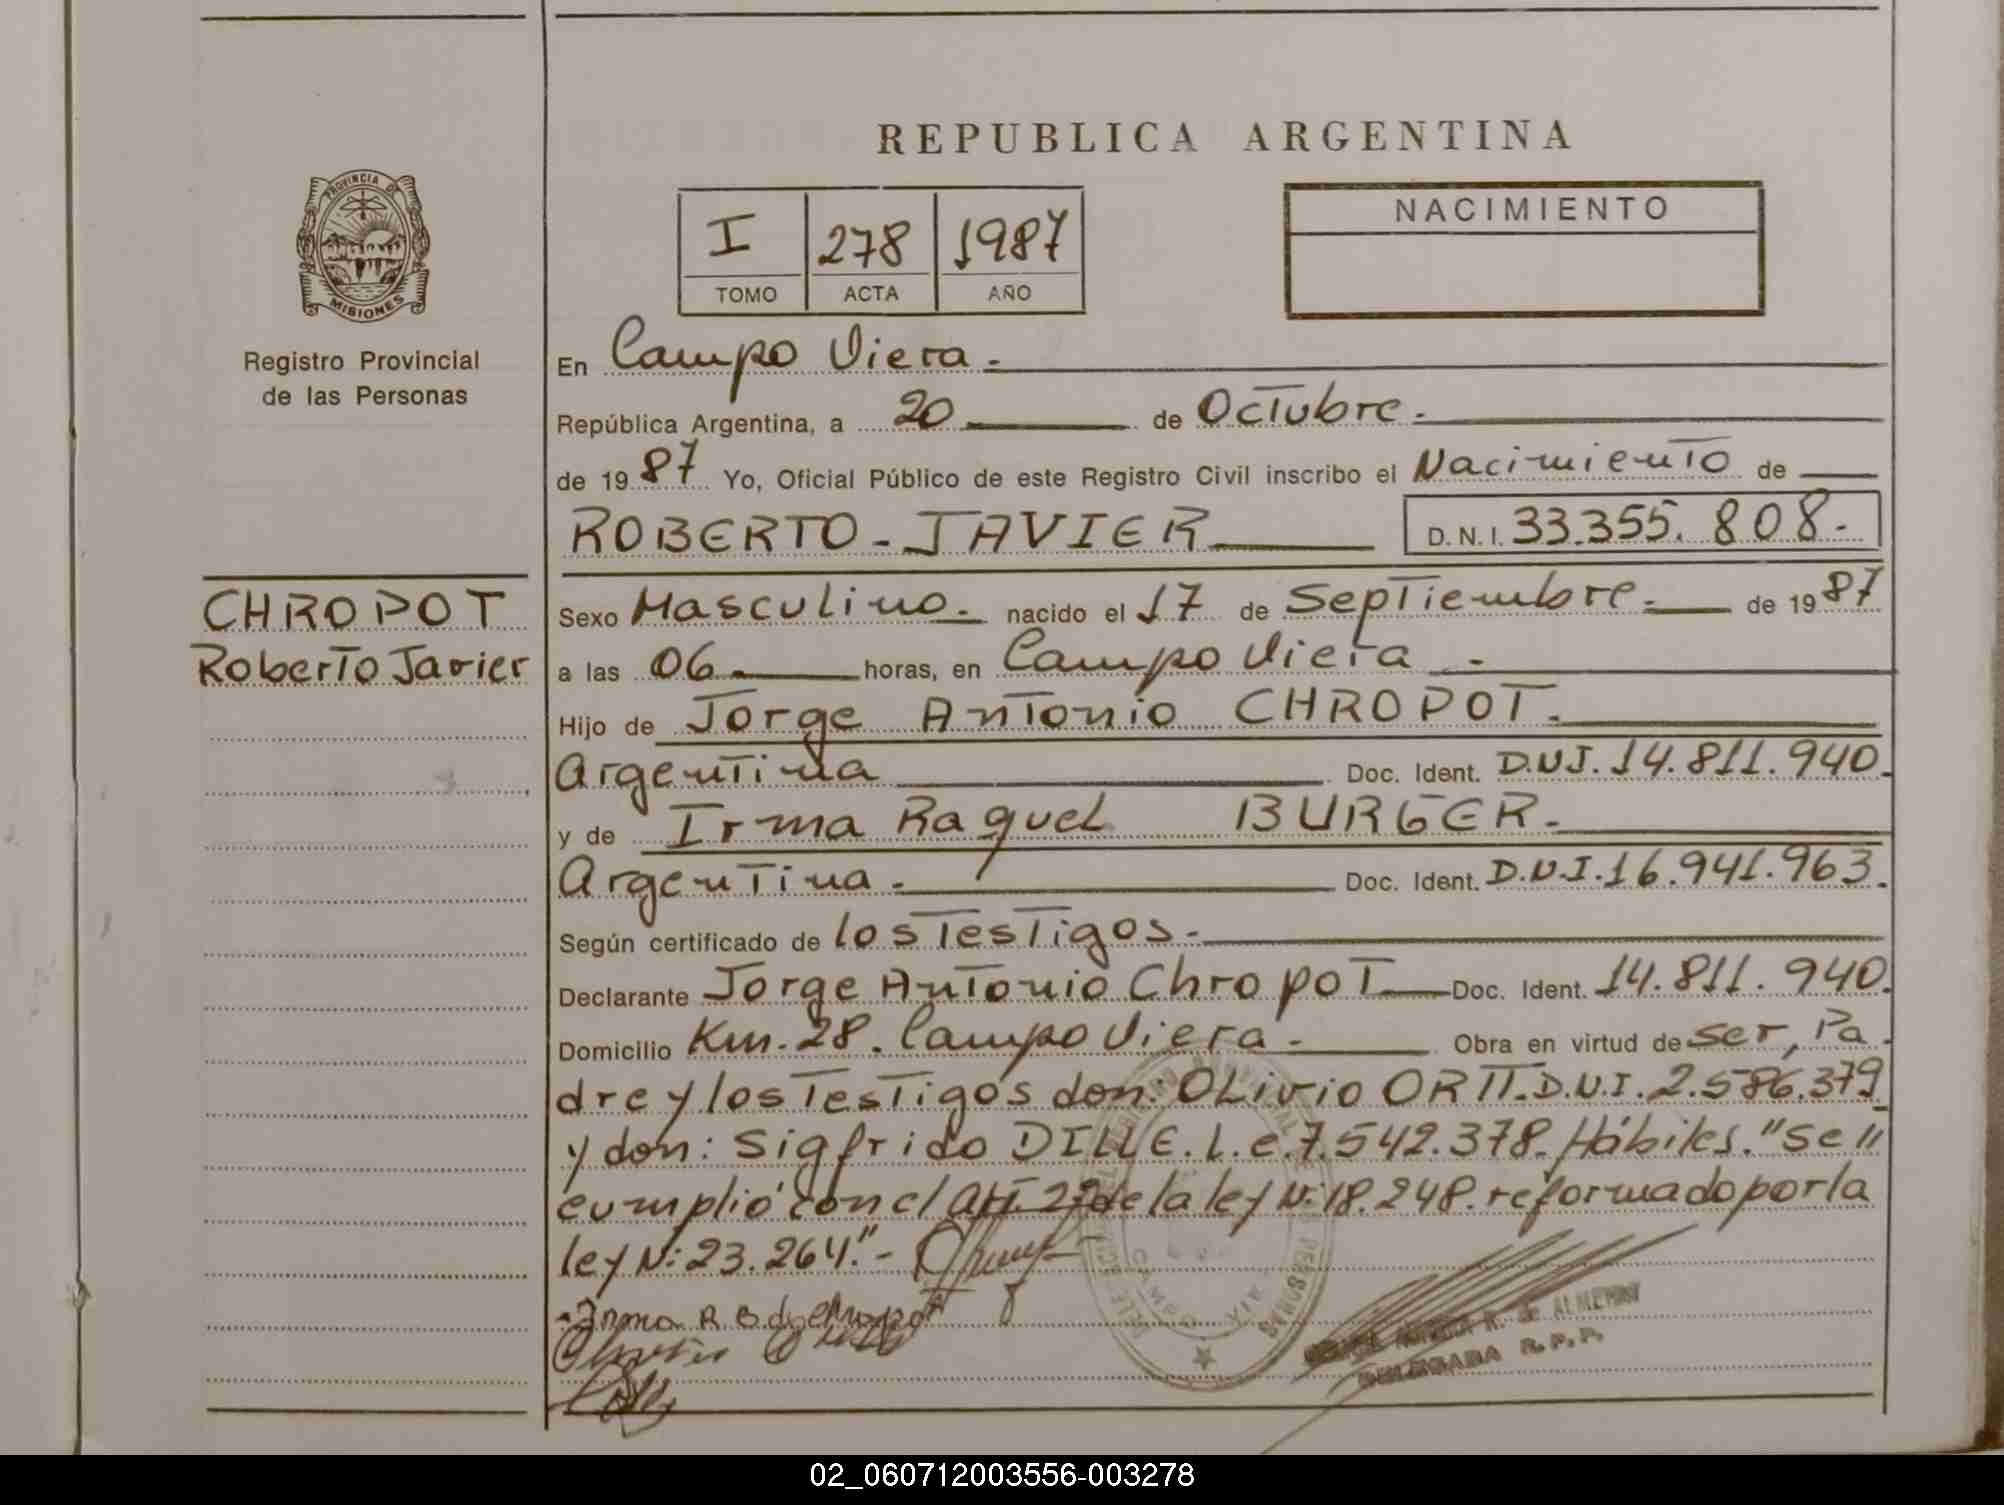 REPUBLICA ARGENTINA
PROVINCIA DE
MISIONES
Registro Provincial
de las Personas
I 278 1987
TOMO ACTA AÑO
NACIMIENTO
En Campo Viera.
República Argentina, a 20 de Octubre.
de 1987 Yo, Oficial Público de este Registro Civil inscribo el Nacimiento de
ROBERTO-JAVIER D.N.I. 33.355.808-
CHROPOT
Roberto Javier
Sexo Masculino. nacido el 17 de Septiembre. de 1987
a las 06. horas, en Campo Viera -
Hijo de Jorge Antonio CHROPOT.
Argentina Doc. Ident. D.N.I. 14.811.940.
y de Irma Raquel BURGER.
Argentina. Doc. Ident. D.N.I. 16.941.963.
Según certificado de los Testigos.
Declarante Jorge Antonio Chropot Doc. Ident. 14.811.940.
Domicilio Km. 28. Campo Viera. Obra en virtud de ser, Pa
dre y los Testigos don: OLivio ORTT. D.N.I. 2.586.379
y don: Sigfrido DILLE. L.e. 7.542.378. Hábiles. "Se"
cumplió con el Art. 27 de la ley N: 18.248. reformado por la
ley N: 23.264."-
Irma R B de Chropot
DELEGADA R.P.P.
02_060712003556-003278